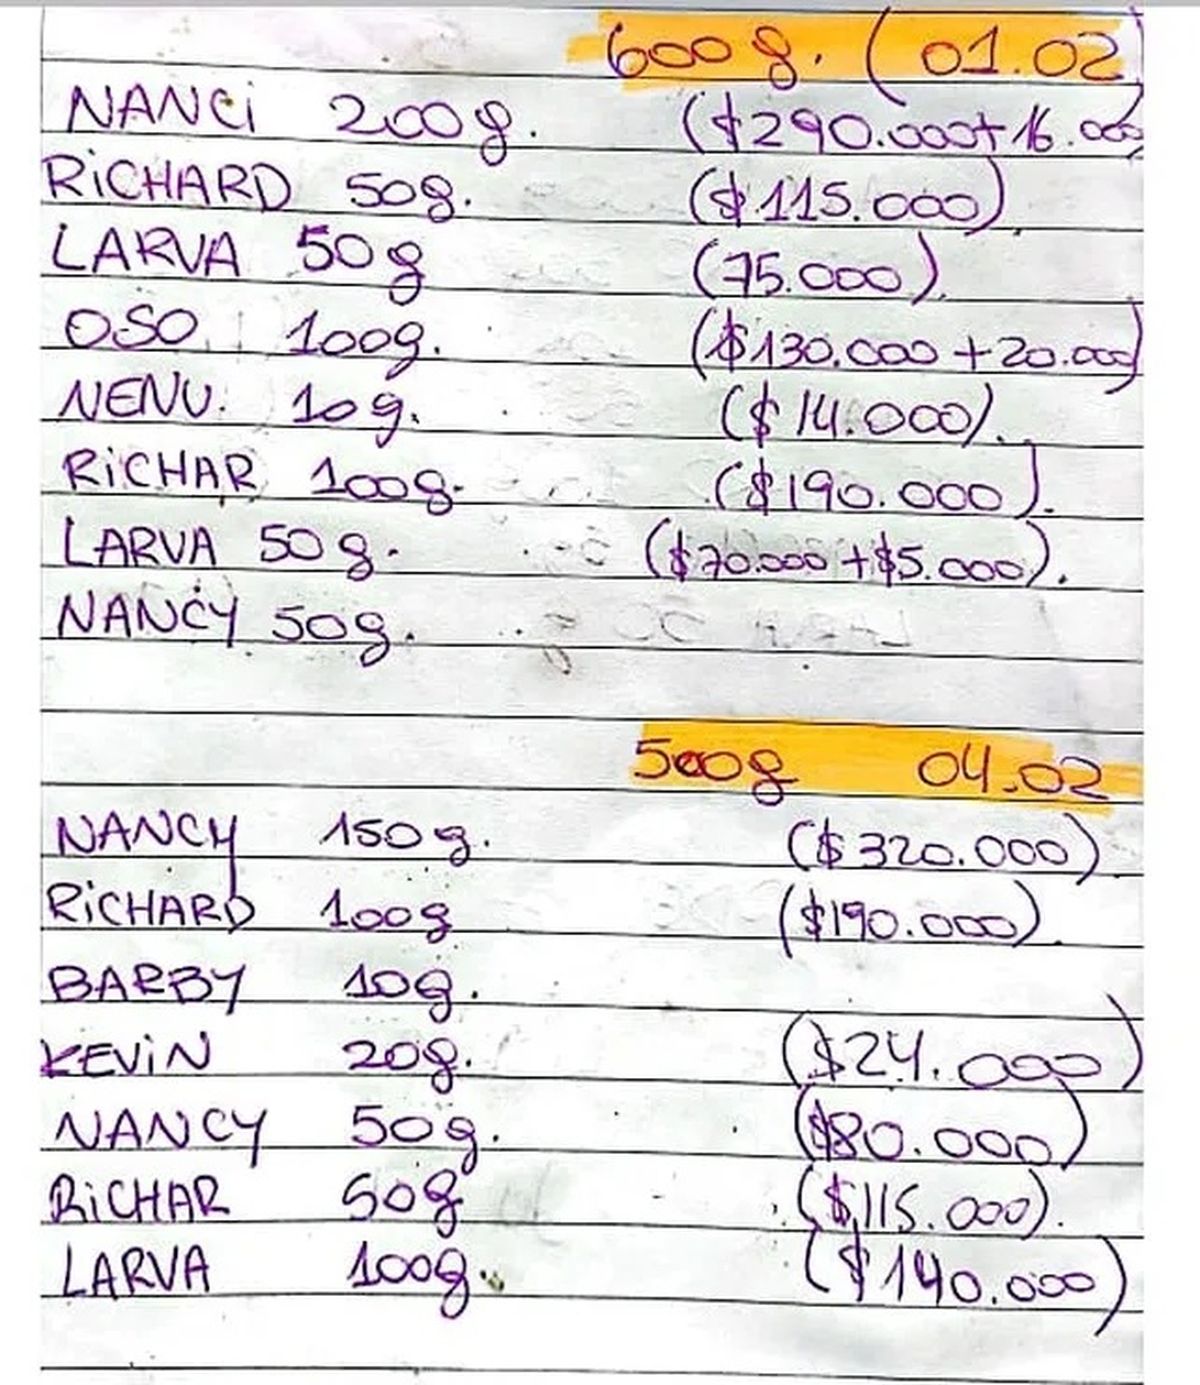 600g. (01.02)
NANCi 200g. ($290.000+16.000)
RiCHARD 50g. ($115.000).
LARVA 50g (75.000).
OSO 100g. ($130.000+20.000)
NENU. 10g. ($14.000).
RiCHAR 100g. ($190.000).
LARVA 50g. ($70.000+$5.000).
NANCY 50g.
500g 04.02
NANCY 150g. ($320.000)
RiCHARD 100g ($190.000).
BARBY 10g.
KEViN 20g. ($24.000)
NANCY 50g. ($80.000)
RiCHAR 50g ($115.000).
LARVA 100g. ($140.000)